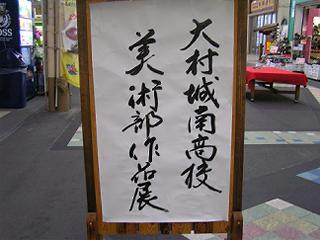 大村城南高校
美術部作品展
BOSS